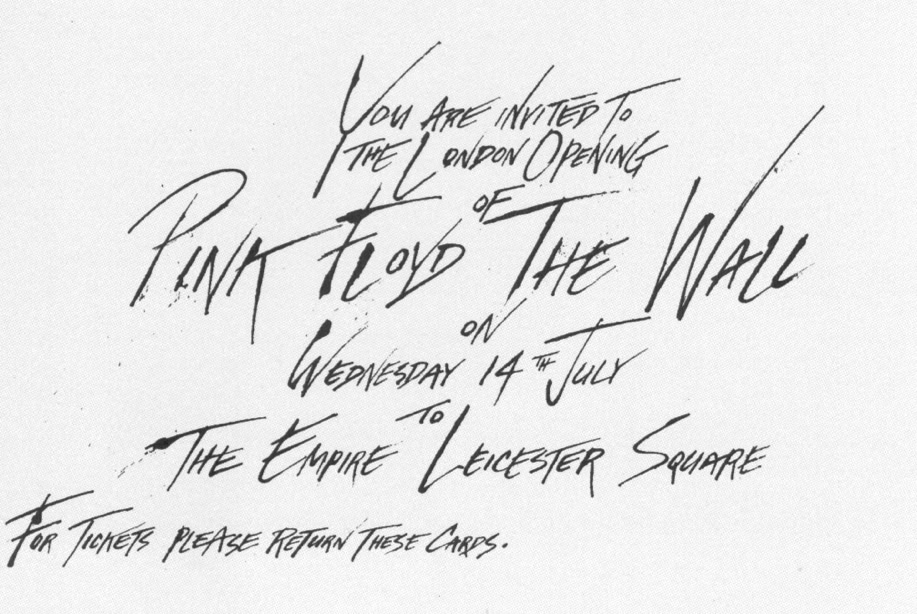 You are invited to
the London Opening
of
Pink Floyd The Wall
on
Wednesday 14TH July
to
The Empire Leicester Square
For Tickets please return these cards.